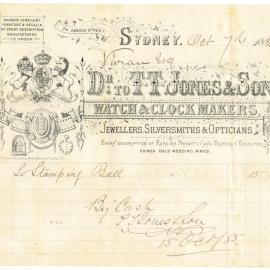 MASONIC JEWELLERY,
FURNITURE & REGALIA
OF EVERY DESCRIPTION
MANUFACTURED
TO ORDER.
GEORGE STREET
SYDNEY, Oct 7th 188
Esq
DR. TO T.T. JONES & SON
WATCH & CLOCK MAKERS,
JEWELLERS, SILVERSMITHS & OPTICIANS
EVERY DESCRIPTION OF REPAIRS PROMPTLY AND PROPERLY EXECUTED.
GUINEA GOLD WEDDING RINGS.
To Stamping Ball 15
By Cash
T T Jones & Son
15 Oct / 85